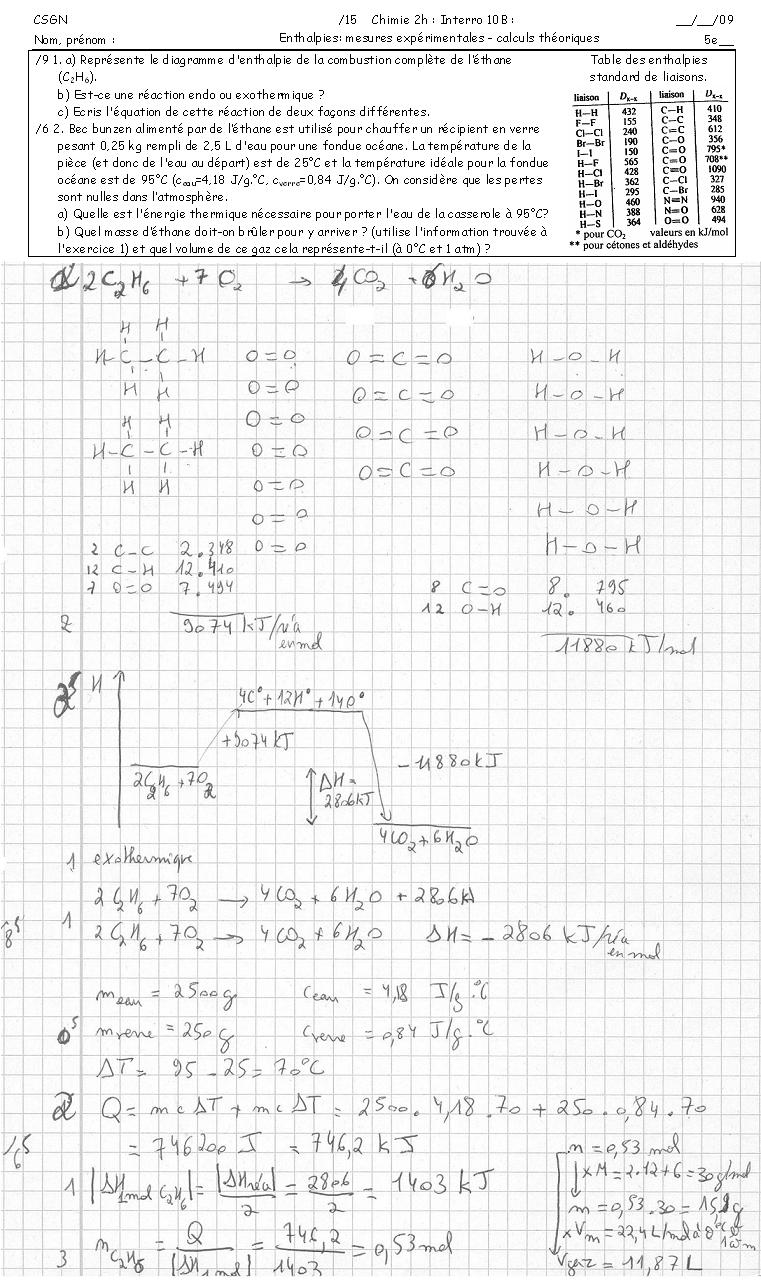 CSGN /15 Chimie 2h : Interro 10B : __/__/09
Nom, prénom : Enthalpies: mesures expérimentales - calculs théoriques 5e__
/9 1. a) Représente le diagramme d'enthalpie de la combustion complète de l'éthane
(C₂H₆).
b) Est-ce une réaction endo ou exothermique ?
c) Ecris l'équation de cette réaction de deux façons différentes.
/6 2. Bec bunzen alimenté par de l'éthane est utilisé pour chauffer un récipient en verre
pesant 0,25 kg rempli de 2,5 L d'eau pour une fondue océane. La température de la
pièce (et donc de l'eau au départ) est de 25°C et la température idéale pour la fondue
océane est de 95°C (c_eau=4,18 J/g.°C, c_verre=0,84 J/g.°C). On considère que les pertes
sont nulles dans l'atmosphère.
a) Quelle est l'énergie thermique nécessaire pour porter l'eau de la casserole à 95°C?
b) Quel masse d'éthane doit-on brûler pour y arriver ? (utilise l'information trouvée à
l'exercice 1) et quel volume de ce gaz cela représente-t-il (à 0°C et 1 atm) ?
Table des enthalpies
standard de liaisons.
liaison D_x-x liaison D_x-x
H—H 432 C—H 410
F—F 155 C—C 348
Cl—Cl 240 C=C 612
Br—Br 190 C—O 356
I—I 150 C=O 795*
H—F 565 C=O 708**
H—Cl 428 C≡O 1090
H—Br 362 C—Cl 327
H—I 295 C—Br 285
H—O 460 N≡N 940
H—N 388 N=O 628
H—S 364 O=O 494
* pour CO₂ valeurs en kJ/mol
** pour cétones et aldéhydes
2 C₂H₆ + 7 O₂ → 4 CO₂ + 6 H₂O
H H
H-C-C-H O=O O=C=O H-O-H
H H O=O O=C=O H-O-H
H H O=O O=C=O H-O-H
H-C-C-H O=O O=C=O H-O-H
H H O=O H-O-H
O=O H-O-H
2 C-C 2.348 O=O
12 C-H 12.410
7 O=O 7.494
8 C=O 8. 795
12 O-H 12. 460
2 9074 kJ/réa
en mol
11880 kJ/mol
H
4C° + 12H° + 14O°
+9074 kJ
-11880 kJ
2C₂H₆ + 7O₂
ΔH =
2806 kJ
4CO₂ + 6H₂O
1 exothermique
2 C₂H₆ + 7O₂ → 4CO₂ + 6 H₂O + 2806 kJ
1 2 C₂H₆ + 7O₂ → 4CO₂ + 6H₂O ΔH = - 2806 kJ/réa
en mol
m_eau = 2500 g c_eau = 4,18 J/g.°C
m_verre = 250 g c_verre = 0,84 J/g.°C
ΔT = 95 - 25 = 70°C
Q = m c ΔT + m c ΔT = 2500 . 4,18 . 70 + 250 . 0,84 . 70
= 746200 J = 746,2 kJ
1 |ΔH_1mol C₂H₆| = |ΔH réa|/2 = 2806/2 = 1403 kJ
3 n_C₂H₆ = Q/|ΔH_1mol| = 746,2/1403 = 0,53 mol
n = 0,53 mol
x M = 2.12+6 = 30 g/mol
m = 0,53 . 30 = 15,9 g
x V_m = 22,4 L/mol à 0°C et
1 atm
V_gaz = 11,87 L